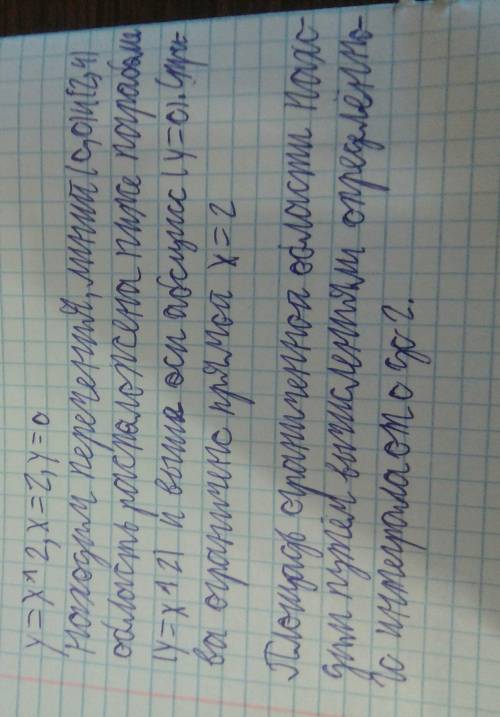 y=x^2, x=2, y=0
Находим перечения, линий (0,0) и (2,4)
область расположена ниже параболы
(y=x^2) и выше оси абсцисс (y=0). Спра-
ва ограничено прямой x=2
Площадь ограниченной области нахо-
дим путём вычислениями определённо-
го интеграла от 0 до 2.